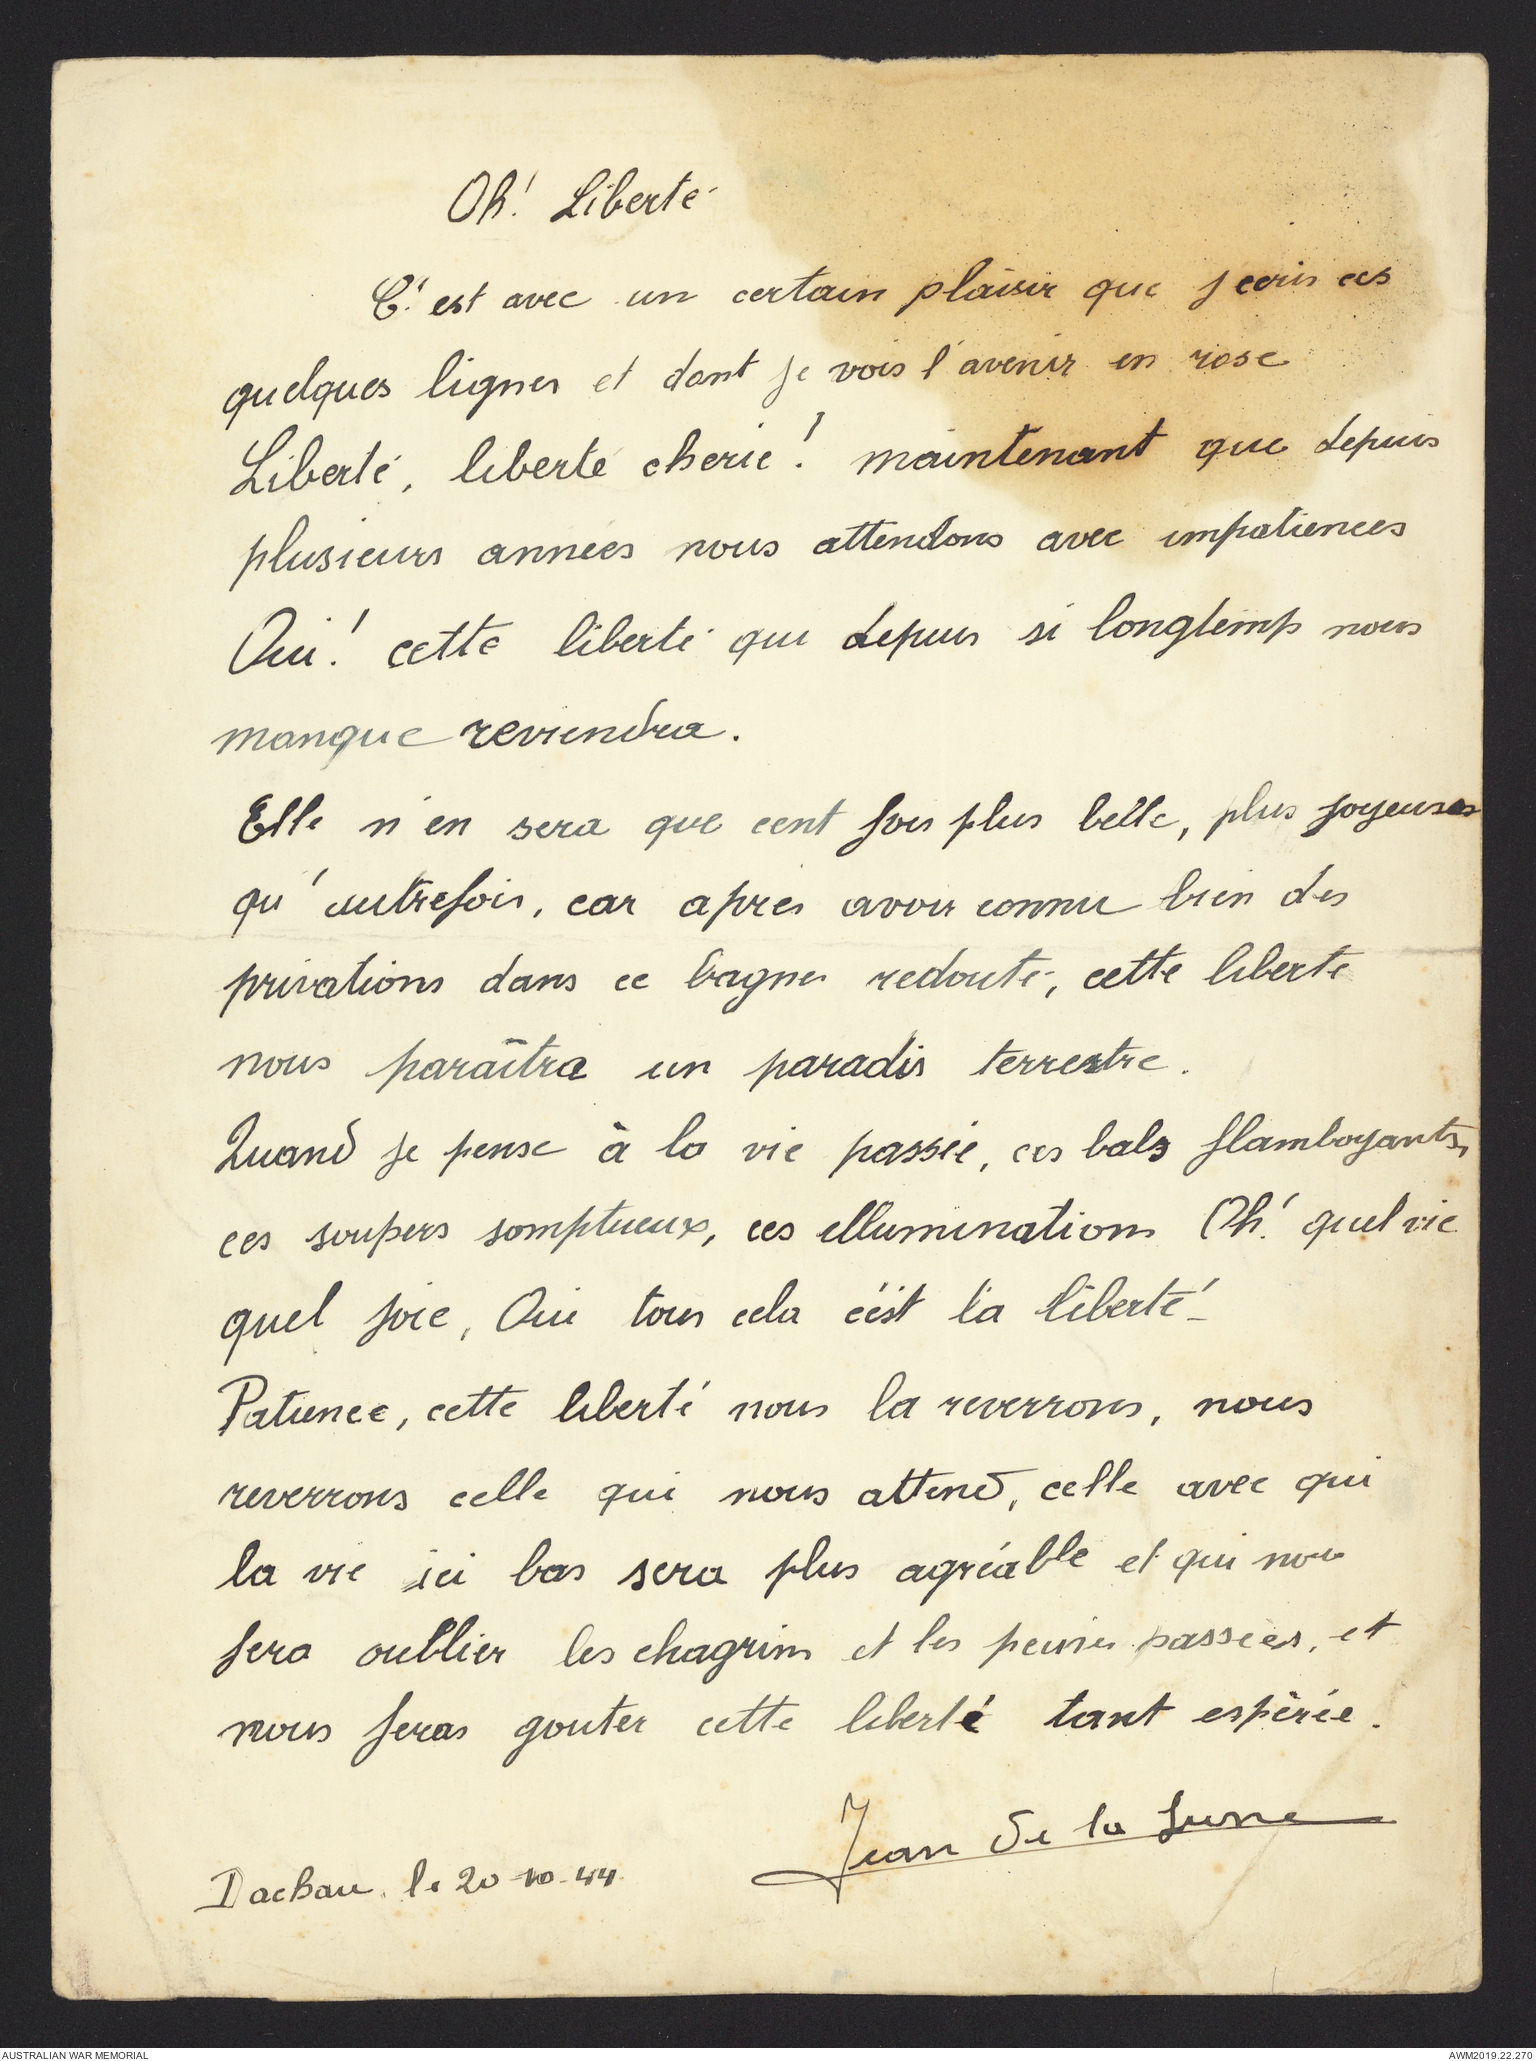 Oh! Liberté
C'est avec un certain plaisir que j ecris ces
quelques lignes et dont je vois l'avenir en rose
Liberté, liberté cherie! maintenant que depuis
plusieurs années nous attendons avec impatiences
Oui! cette liberté qui depuis si longtemp nous
manque reviendra.
Elle n'en sera que cent fois plus belle, plus joyeuses
qu'autrefois, car apres avoir connu bien des
privations dans ce bagnes redouté, cette liberte
nous paraîtra un paradis terrestre.
Quand je pense à la vie passée, ces bals flamboyants,
ces soupers somptueux, ces illuminations Oh! quel vie
quel joie, Oui tous cela c'est la liberté-
Patience, cette liberté nous la reverrons, nous
reverrons celle qui nous attend, celle avec qui
la vie ici bas sera plus agréable et qui nous
fera oublier les chagrins et les peines passées, et
nous feras gouter cette liberté tant espérée.
Jean de la Lune
Dachau, le 20-10-44
AUSTRALIAN WAR MEMORIAL
AWM2019.22.270